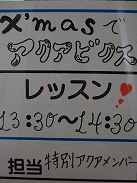 X'masで
アクアビクス
レッスン
13:30〜14:30
担当 特別アクアメンバー